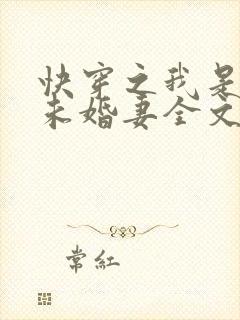 快穿之我是
未婚妻全文
常红